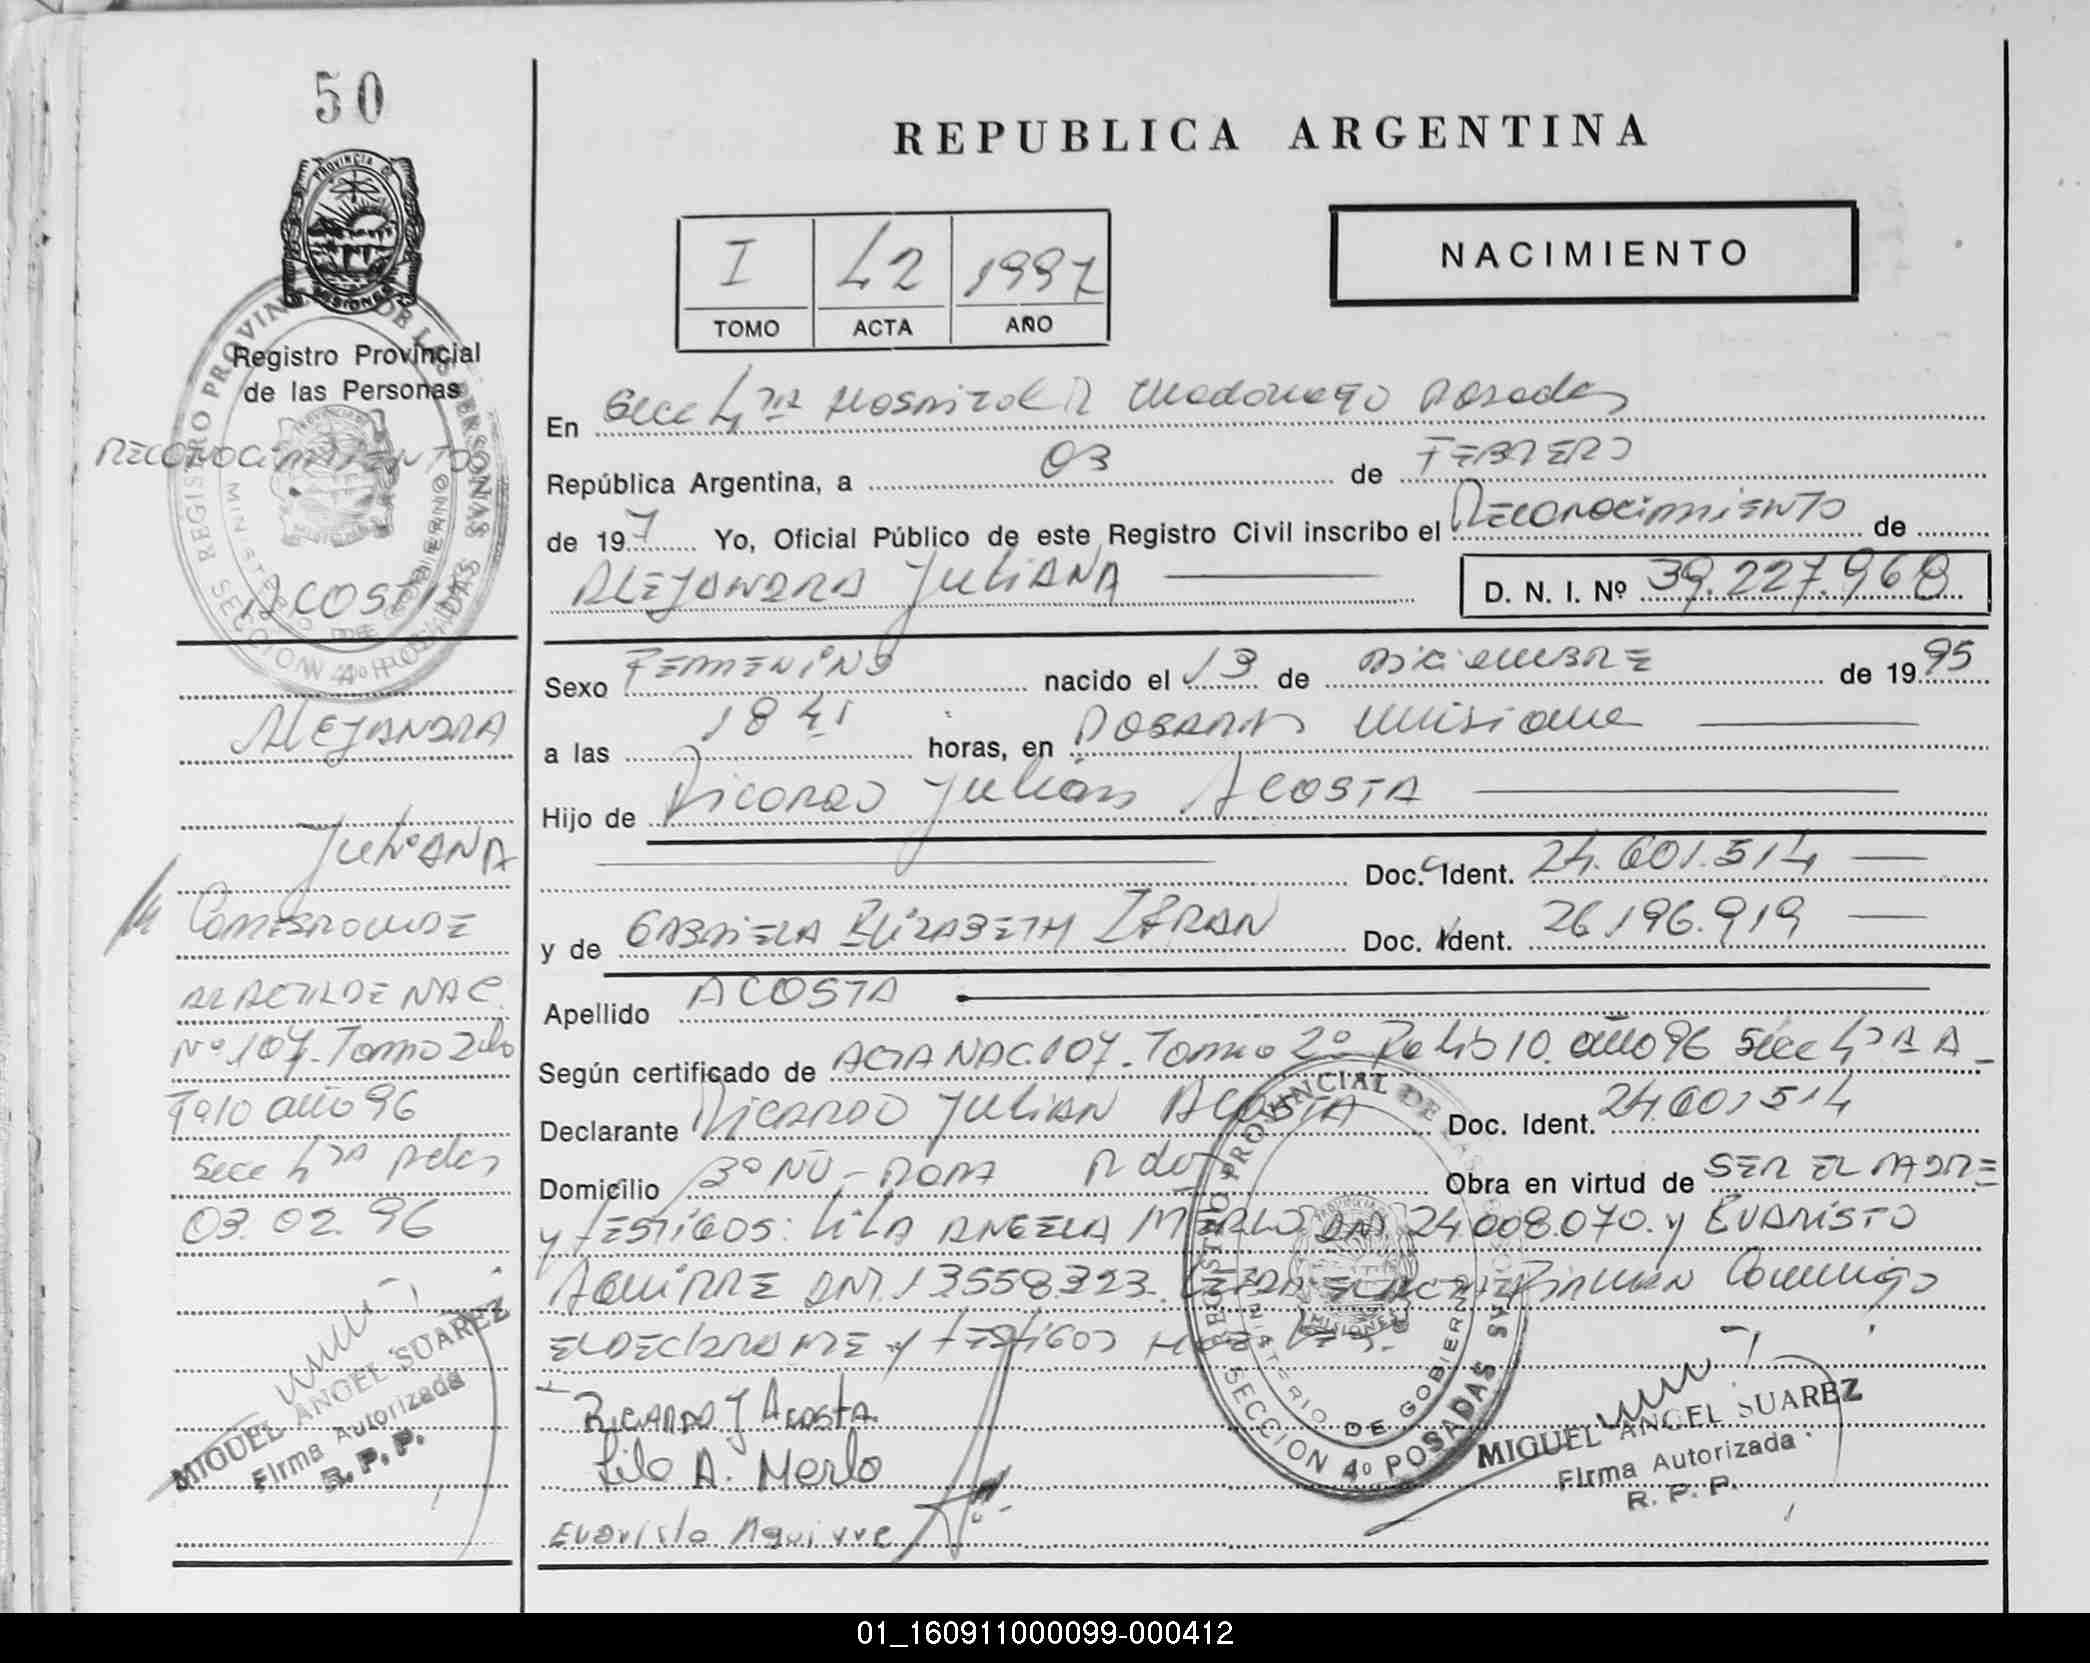 50
REPUBLICA ARGENTINA
NACIMIENTO
I 42 1997
TOMO ACTA AÑO
PROVINCIA DE MISIONES
Registro Provincial
de las Personas
RECONOCIMIENTO
ACOSTA
ALEJANDRA
JULIANA
CORRESPONDE
AL ACTA DE NAC.
Nº 107. Tomo 2do
Fº 10 año 96
Secc 4ta Pdas
03.02.96
MIGUEL ANGEL SUAREZ
Firma Autorizada
R. P. P.
En Secc 4ta Hospital R Madariaga Posadas
República Argentina, a 03 de FEBRERO
de 197 Yo, Oficial Público de este Registro Civil inscribo el Reconocimiento de
ALEJANDRA JULIANA D. N. I. Nº 39.227.968
Sexo FEMENINO nacido el 13 de DICIEMBRE de 1995
a las 18 41 horas, en POSADAS Misiones
Hijo de Ricardo Julián ACOSTA
Doc. Ident. 24.601.514
y de GABRIELA ELIZABETH Doc. Ident. 26.196.919
Apellido ACOSTA
Según certificado de ACTA NAC. 107. Tomo 2º Folio 10. año 96 Secc 4ta A
Declarante RICARDO JULIAN ACOSTA Doc. Ident. 24.601514
Domicilio Obra en virtud de SER EL PADRE
y TESTIGOS: LILA ANGELA MERLO DNI 24.008.070. y EVARISTO
AGUIRRE DNI. 13558323. LEIDA EL ACTA FIRMAN Conmigo
EL DECLARANTE y TESTIGOS
RICARDO J ACOSTA
Lila A. Merlo
Evaristo Aguirre
REGISTRO PROVINCIAL DE LAS PERSONAS
MINISTERIO DE GOBIERNO
SECCION 4º POSADAS
MIGUEL ANGEL SUAREZ
Firma Autorizada
R. P. P.
01_160911000099-000412